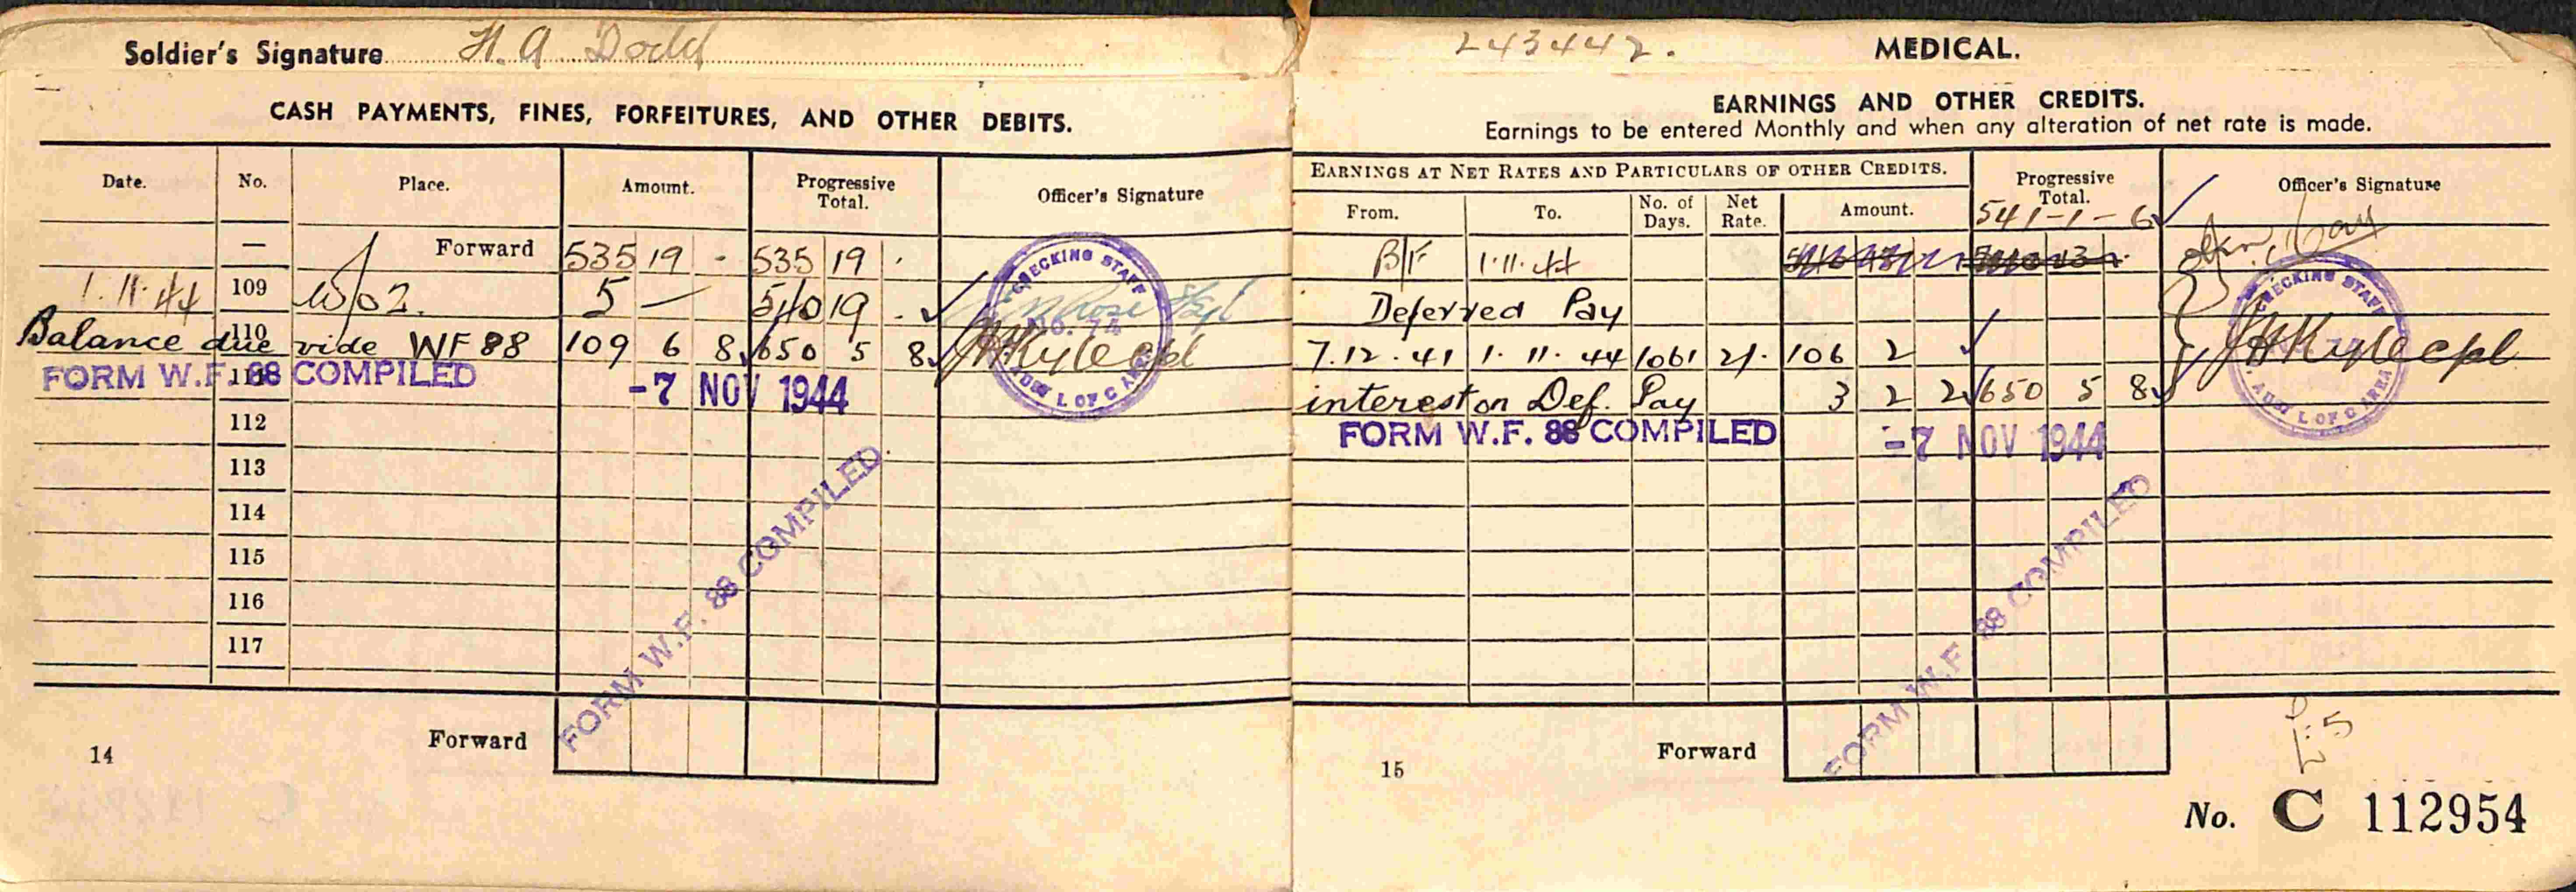 Soldier's Signature H. A. Dodd
CASH PAYMENTS, FINES, FORFEITURES, AND OTHER DEBITS.
Date. No. Place. Amount. Progressive Total. Officer's Signature
— Forward 535 19 - 535 19 .
1.11.44 109 5 — 540 19 .
110
Balance due vide WF 88 109 6 8 650 5 8
FORM W.F. 88 COMPILED -7 NOV 1944
112
113
114
115
116
117
FORM W.F. 88 COMPILED
CHECKING STAFF
L OF C AREA
Forward
14
243442. MEDICAL.
EARNINGS AND OTHER CREDITS.
Earnings to be entered Monthly and when any alteration of net rate is made.
EARNINGS AT NET RATES AND PARTICULARS OF OTHER CREDITS. Progressive Total. Officer's Signature
From. To. No. of Days. Net Rate. Amount. 541-1-6
B/F 1.11.44
Deferred Pay
7.12.41 1.11.44 1061 2/- 106 2
interest on Def. Pay 3 2 2 650 5 8
FORM W.F. 88 COMPILED -7 NOV 1944
FORM W.F. 88 COMPILED
CHECKING STAFF
L OF C AREA
Forward
15
No. C 112954